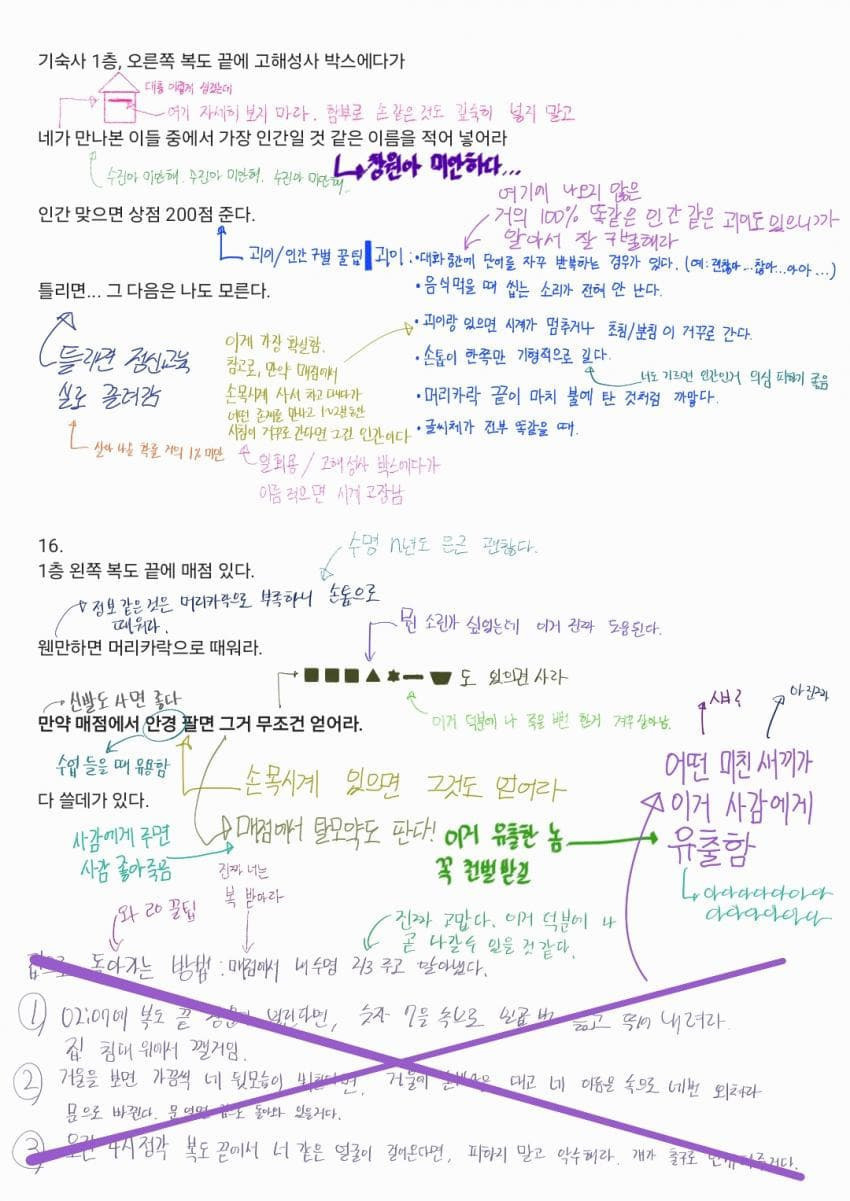 기숙사 1층, 오른쪽 복도 끝에 고해성사 박스에다가
대충 이렇게 생겼는데
여기 자세히 보지 마라. 함부로 손 같은것도 깊숙히 넣지 말고
네가 만나본 이들 중에서 가장 인간일 것 같은 이름을 적어 넣어라
수진아 미안해. 수진아 미안해. 수진아 미안해..
창원아 미안하다...
여기에 나오지 않은
거의 100% 똑같은 인간 같은 괴이도 있으니까
알아서 잘 구별해라
인간 맞으면 상점 200점 준다.
괴이/인간 구별 꿀팁
괴이:
• 대화 중간에 단어를 자꾸 반복하는 경우가 있다. (예: 괜찮아...찮아...아아...)
• 음식먹을 때 씹는 소리가 전혀 안 난다.
틀리면... 그 다음은 나도 모른다.
• 괴이랑 있으면 시계가 멈추거나 초침/분침이 거꾸로 간다.
• 손톱이 한쪽만 기형적으로 길다.
너도 기르면 인간인거 의심 피하기 좋음
• 머리카락 끝이 마치 불에 탄 것처럼 까맣다.
• 글씨체가 전부 똑같을 때.
틀리면 정신교육
실로 끌려감
살아 나올 확률 거의 1% 미만
이게 가장 확실함.
참고로, 만약 매점에서
손목시계 사서 차고 다니다가
어떤 존재를 만나고 1~2초 동안
시침이 거꾸로 간다면 그건 인간이다
일회용 / 고해성사 박스에다가
이름 적으면 시계 고장남
16.
수명 n년도 은근 괜찮다.
1층 왼쪽 복도 끝에 매점 있다.
정보 같은 것은 머리카락으로 부족하니 손톱으로
때워라.
뭔 소린가 싶었는데 이거 진짜 도움된다.
웬만하면 머리카락으로 때워라.
■■■▲✶━ 도 있으면 사라
신발도 사면 좋다
이거 덕분에 나 죽을 뻔 한거 겨우 살아남.
만약 매점에서 안경 팔면 그거 무조건 얻어라.
수업 들을 때 유용함
손목시계 있으면 그것도 얻어라
다 쓸데가 있다.
사감에게 주면
사감 좋아죽음
매점에서 탈모약도 판다!
진짜 너는
복 받아라
이거 유출한 놈
꼭 천벌받길
아 진짜
어떤 미친새끼가
이거 사감에게
유출함
와 ㄹㅇ 꿀팁
진짜 고맙다. 이거 덕분에 나
곧 나갈수 있을 것 같다.
집으로 돌아가는 방법: 매점에서 내 수명 2/3 주고 알아냈다.
① 02:07에 복도 끝 열린다면, 숫자 7을 속으로 일곱 번 뛰어 내려라.
집 침대 위에서 깰거임.
② 거울을 보면 가끔씩 네 뒷모습이 거울에 대고 네 이름을 속으로 네번 외쳐라
문으로 바뀐다. 문 열면 돌아와 있을거다.
③ 오전 4시 정각 복도 끝에서 너 같은 얼굴이 걸어온다면, 피하지 말고 악수해라. 걔가 출구로